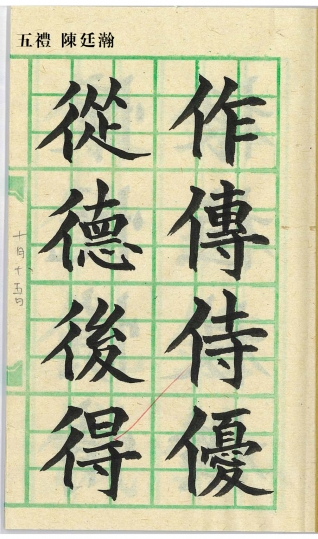 五禮 陳廷瀚
作傳侍優
從德後得
十月十五日